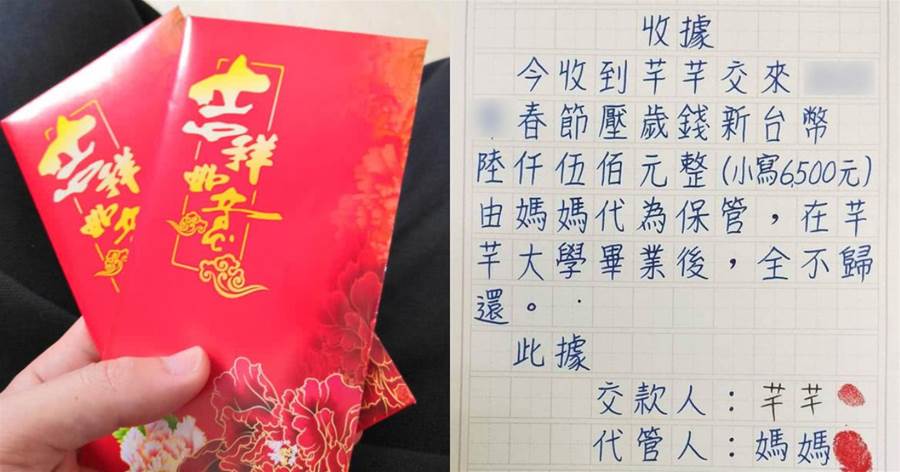 吉祥如意
吉祥如意
收據
今收到芊芊交來
春節壓歲錢新台幣
陸仟伍佰元整(小寫6,500元)
由媽媽代為保管，在芊
芊大學畢業後，全不歸
還。
此據
交款人：芊芊
代管人：媽媽